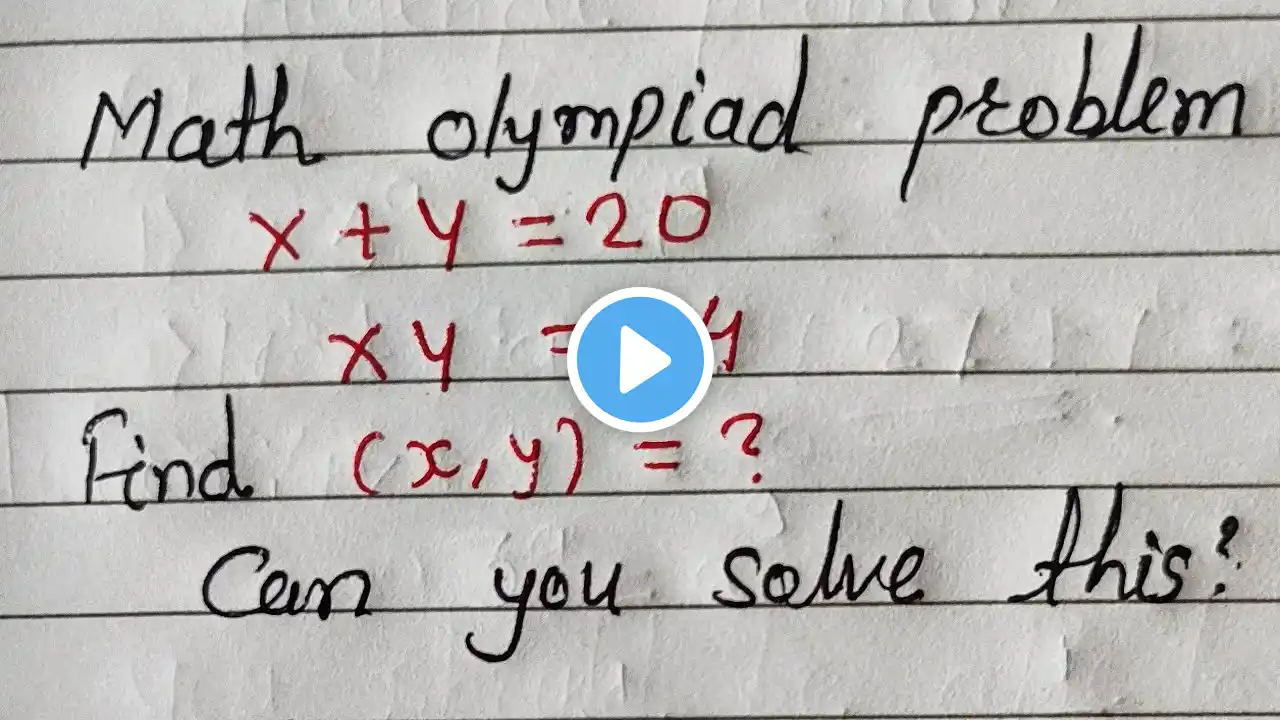 Math olympiad problem
x + y = 20
xy =
Find (x,y) = ?
Can you solve this?